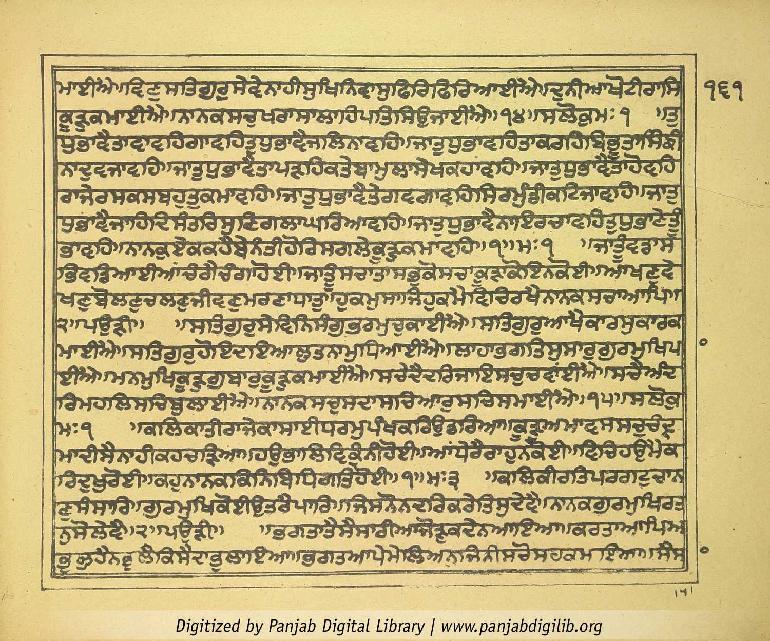 ਮਾਈਐ॥ਵਿਣੁਸਤਿਗੁਰੁਸੇਵੇਨਾਹੀਸੁਖਿਨਿਵਾਸੁਫਿਰਿਫਿਰਿਆਈਐ॥ਦੁਨੀਆਖੋਟੀਰਾਸਿ ੧੬੧
ਕੂੜੁਕਮਾਈਐ॥ਨਾਨਕਸਚੁਖਰਾਸਾਲਾਹਿਪਤਿਸਿਉਜਾਈਐ॥੧੪॥ਸਲੋਕੁਮਃ੧ ॥ਤੁ
ਧੁਭਾਵੈਤਾਵਾਵਹਿਗਾਵਹਿਤੁਧੁਭਾਵੈਜਲਿਨਾਵਹਿ॥ਜਾਤੁਧੁਭਾਵਹਿਤਾਕਰਹਿਬਿਭੂਤਾਸਿੰਙੀ
ਨਾਦੁਵਜਾਵਹਿ॥ਜਾਤੁਧੁਭਾਵੈਤਾਪੜਹਿਕਤੇਬਾਮੁਲਾਸੇਖਕਹਾਵਹਿ॥ਜਾਤੁਧੁਭਾਵੈਤਾਹੋਵਹਿ
ਰਾਜੇਰਸਕਸਬਹੁਤੁਕਮਾਵਹਿ॥ਜਾਤੁਧੁਭਾਵੈਤੇਗਵਗਾਵਹਿਸਿਰਮੁੰਡੀਕਟਿਜਾਵਹਿ॥ਜਾਤੁ
ਧੁਭਾਵੈਜਾਹਿਦਿਸੰਤਰਿਸੁਣਿਗਲਾਘਰਿਆਵਹਿ॥ਜਾਤੁਧੁਭਾਵੈਨਾਇਰਚਾਵਹਿਤੁਧੁਭਾਣੇਤੂੰ
ਭਾਵਹਿ॥ਨਾਨਕੁਏਕਕਹੈਬੇਨੰਤੀਹੋਰਿਸਗਲੇਕੂੜੁਕਮਾਵਹਿ॥੧॥ਮਃ੧ ॥ਜਾਤੂੰਵਡਾਸਭਿ
ਵਡਿਆਈਆਂਚੰਗੈਚੰਗਾਹੋਈ॥ਜਾਤੂੰਸਚਾਤਾਸਭੁਕੋਸਚਾਕੂੜਾਕੋਇਨਕੋਈ॥ਆਖਣੁਵੇ
ਖਣੁਬੋਲਣੁਚਲਣੁਜੀਵਣੁਮਰਣਾਧਾਤੁ॥ਹੁਕਮੁਸਾਜਿਹੁਕਮੈਵਿਚਿਰਖੈਨਾਨਕਸਚਾਆਪਿ॥
੨॥ਪਉੜੀ॥ ॥ਸਤਿਗੁਰੁਸੇਵਿਨਿਸੰਗੁਭਰਮੁਚੁਕਾਈਐ॥ਸਤਿਗੁਰੁਆਖੈਕਾਰਸੁਕਾਰਕ
ਮਾਈਐ॥ਸਤਿਗੁਰੁਹੋਇਦਇਆਲੁਤਨਾਮੁਧਿਆਈਐ॥ਲਾਹਾਭਗਤਿਸੁਸਾਰੁਗੁਰਮੁਖਿਪ
ਾਈਐ॥ਮਨਮੁਖਿਕੂੜੁਗੁਬਾਰੁਕੂੜੁਕਮਾਈਐ॥ਸਚੇਦੈਦਰਿਜਾਇਸਚੁਚਵਾਂਈਐ॥ਸਚੈਅੰਦ
ਰਿਮਹਲਿਸਚਿਬੁਲਾਈਐ॥ਨਾਨਕਸਚੁਸਦਾਸਚਿਆਰੁਸਚਿਸਮਾਈਐ॥੧੫॥ਸਲੋਕੁ
ਮਃ੧ ॥ਕਲਿਕਾਤੀਰਾਜੇਕਾਸਾਈਧਰਮੁਪੰਖਕਰਿਉਡਰਿਆ॥ਕੂੜੁਅਮਾਵਸਸਚੁਚੰਦ੍ਰ
ਮਾਦੀਸੈਨਾਹੀਕਹਚੜਿਆ॥ਹਉਭਾਲਿਵਿਕੁੰਨੀਹੋਈ॥ਆਧੇਰੈਰਾਹੁਨਕੋਈ॥ਵਿਚਿਹਉਮੈਕ
ਰਿਦੁਖੁਰੋਈ॥ਕਹੁਨਾਨਕਕਿਨਿਬਿਧਿਗਤਿਹੋਈ॥੧॥ਮਃ੩ ॥ਕਲਿਕੀਰਤਿਪਰਗਟੁਚਾਨ
ਣੁਸੰਸਾਰਿ॥ਗੁਰਮੁਖਿਕੋਈਉਤਰੈਪਾਰਿ॥ਜਿਸਨੋਨਦਰਿਕਰੇਤਿਸੁਦੇਵੈ॥ਨਾਨਕਗੁਰਮੁਖਿਰਤ
ਨੁਸੋਲੇਵੈ॥੨॥ਪਉੜੀ॥ ॥ਭਗਤਾਤੈਸੈਸਾਰੀਆਜੋੜੁਕਦੇਨਆਇਆ॥ਕਰਤਾਆਪਿਅ
ਭੁਲੁਹੈਨਭੁਲੈਕਿਸੈਦਾਭੁਲਾਇਆ॥ਭਗਤਆਪੇਮੇਲਿਅਨੁਜਿਨੀਸਚੋਸਚੁਕਮਾਇਆ॥ਸੈਸ
Digitized by Panjab Digital Library | www.panjabdigilib.org